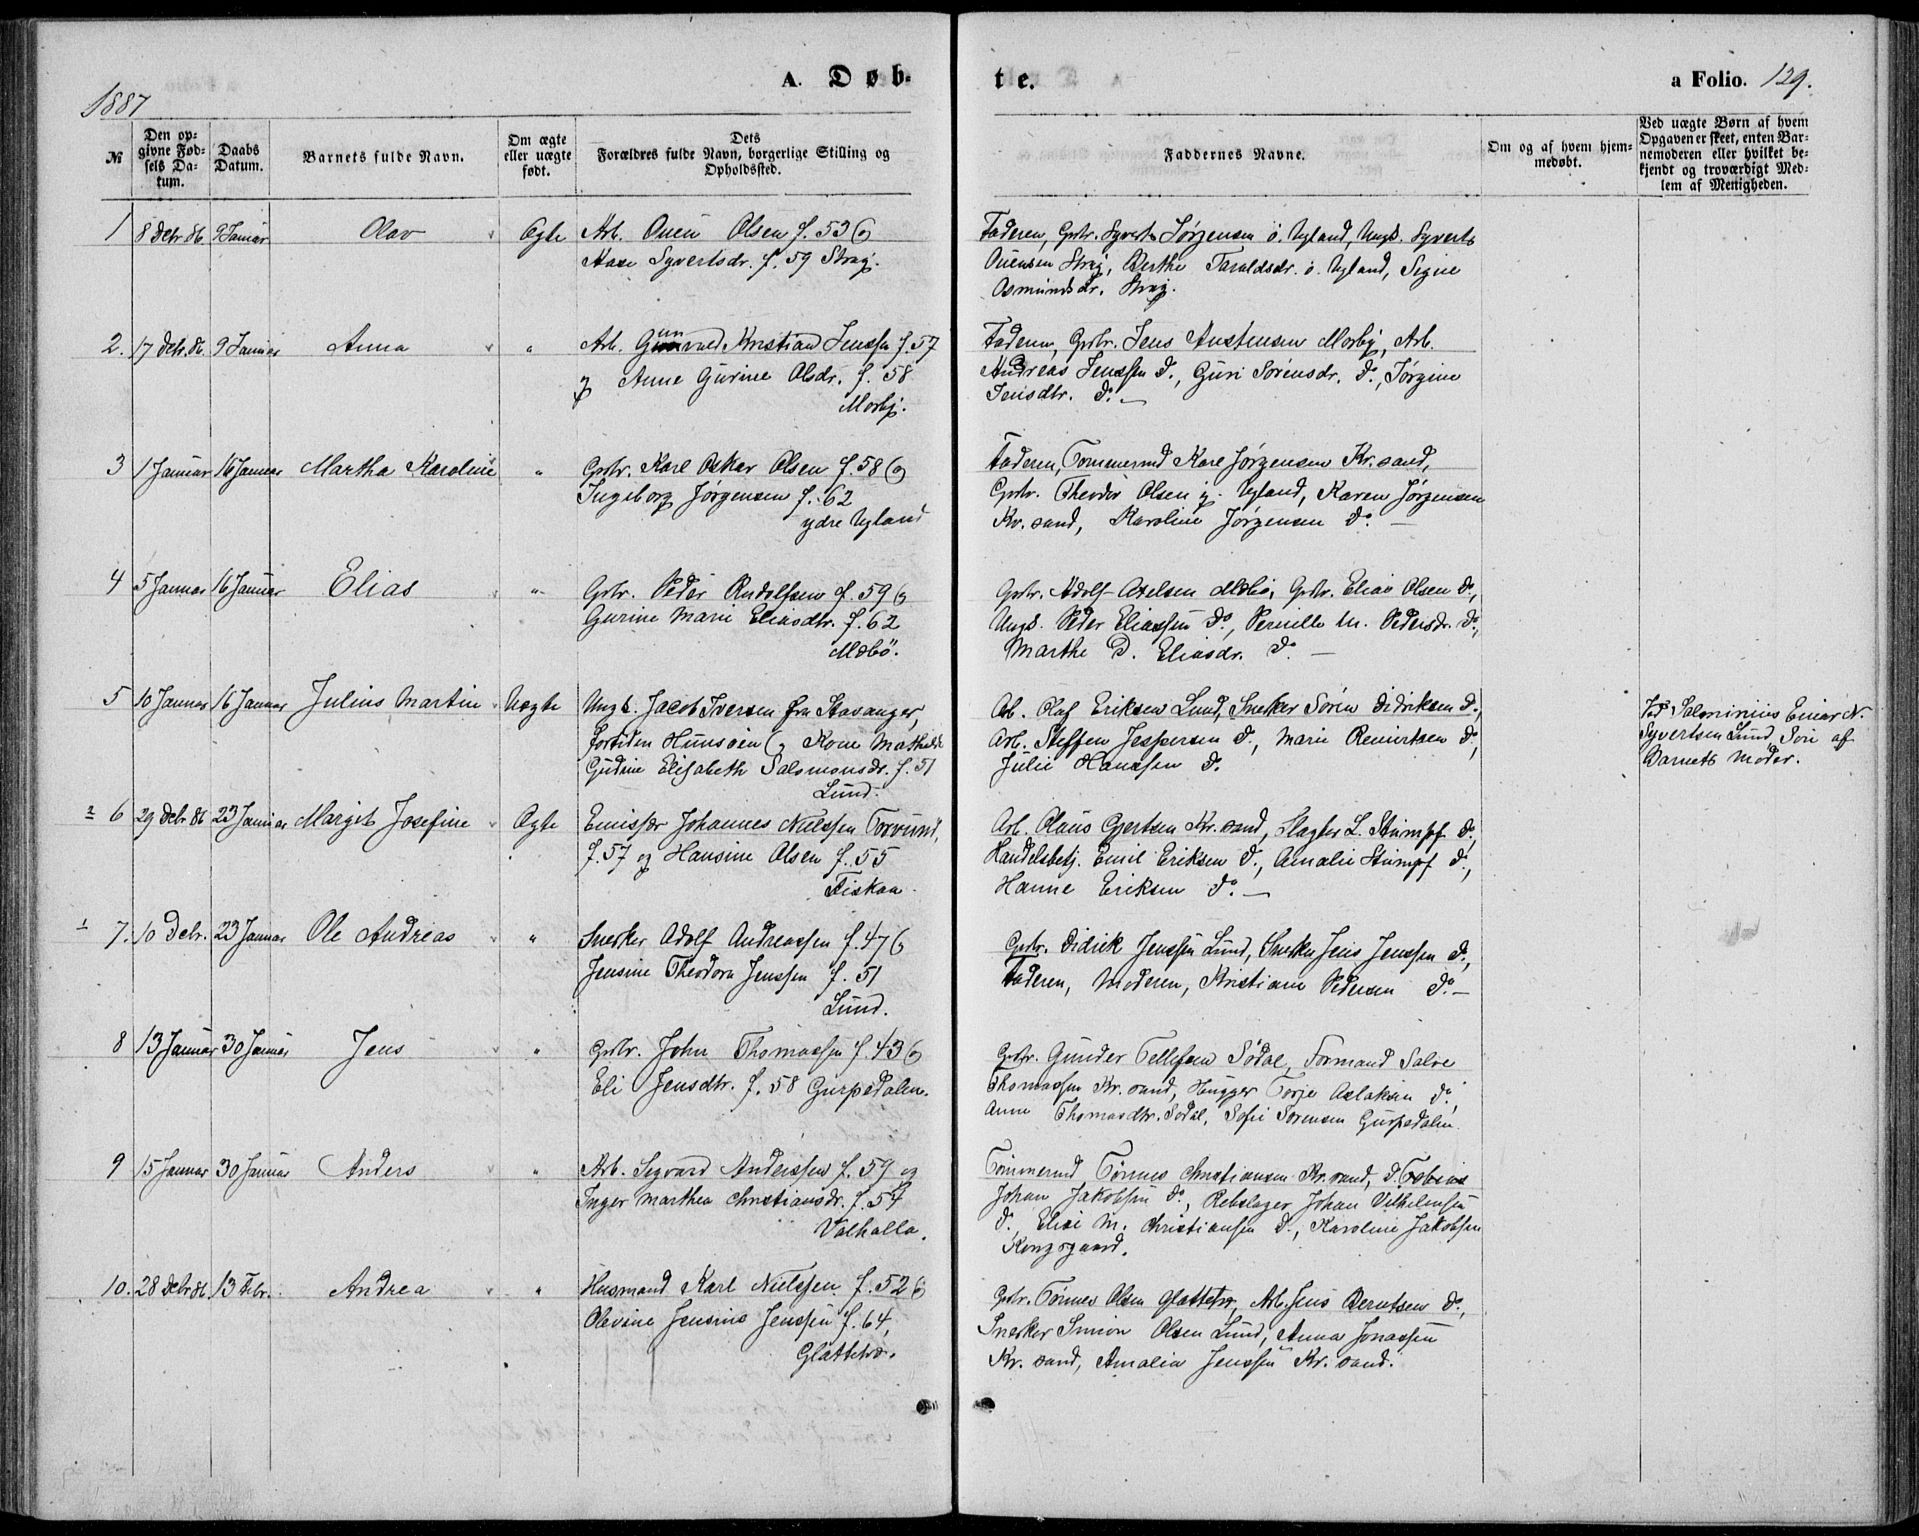 1887
A. Døb-
te.
a Folio. 129.
№
Den op-
givne Fød-
sels Da-
tum.
Daabs
Datum.
Barnets fulde Navn.
Om ægte
eller uægte
født.
Dets
Forældres fulde Navn, borgerlige Stilling og
Opholdssted.
Faddernes Navne.
Om og af hvem hjem-
medøbt.
Ved uægte Børn af hvem
Opgaven er skeet, enten Bar-
nemoderen eller hvilket be-
kjendt og troværdigt Med-
lem af Menigheden.
1 8 Debr 86 9 Januar Olav Ægte Arb. Ouen Olsen f. 53 og
Aase Syvertsdr. f. 59 Straj.
Faderen, Gbr. Syvert Jørgensen ö. Ugland, Ungk. Syvert
Ouensen Straj, Berthe Taraldsdr. ö. Ugland, Signe
Osmundsdr. Straj.
2. 17 Debr. 86. 9 Januar Anna " Arb. Gunvald Kristian Jenssen f. 57
og Anne Gurine Olsdr. f. 58
Mosby.
Faderen, Gbr. Jens Austensen Mosby, Arb.
Andreas Jenssen do., Guri Sørensdr. do., Jørgine
Jensdtr. do. —
3 1 Januar 16 Januar Martha Karoline " Gbr. Karl Oskar Olsen f. 58 og
Ingeborg Jørgensen f. 62
ydre Ugland
Faderen, Tømmermd Karl Jørgensen Kr.sand,
Gbr. Theodor Olsen y. Ugland, Karen Jørgensen
Kr.sand, Karoline Jørgensen do. —
4 5 Januar 16 Januar Elias " Gbr. Peder Rudolfsen f. 59 og
Gurine Marie Eliasdtr. f. 62
Mæbø.
Gbr. Adolf Axelsen Mæbø, Gbr. Elias Olsen do.,
Ungk. Peder Eliassen do., Pernille M. Pedersdr. do.,
Marthe D. Eliasdr. do —
5 10 Januar 16 Januar Julius Martin Uægte Ungk. Jacob Iversen fra Stavanger,
fortiden Hunsøen og Kone Mathilde
Gudine Elisabeth Salomonsdr. f. 51
Lund.
Arb. Olaf Eriksen Lund, Snekker Søren Didriksen do.,
Arb. Steffen Jespersen do., Marie Reiertsen do,
Julie Hanssen do.
Ved Salominius Einar N.
Syvertsen Lund Søn af
Barnets Moder.
2 6 29 Debr 86 23 Januar Margit Josefine Ægte Emissær Johannes Nielssen Torvund,
f. 57 og Hansine Olsen f. 55
Fiskaa.
Arb. Claus Gjertsen Kr.sand, Slagter L. Stumpf do.,
Handelsbetj. Emil Eriksen do., Amalie Stumpf do,
Hanne Eriksen do. —
1 7. 10 Debr. 23 Januar Ole Andreas " Snekker Adolf Andreassen f. 47 og
Jensine Theodora Jenssen f. 51
Lund.
Gbr. Didrik Jenssen Lund, Snekker Jens Jenssen do.,
Faderen, Moderen, Kristiane Pedersen do. —
8 13 Januar 30 Januar Jens " Gbr. John Thomassen f. 43 og
Eli Jensdtr. f. 58 Gurpedalen.
Gbr. Gunder Tellefsen Sødal, Formand Salve
Thomassen Kr.sand, Hugger Torje Aslaksen do.,
Anne Thomasdtr. Sødal, Sofie Sørensen Gurpedalen.
9 15 Januar 30 Januar Anders " Arb. Sigvard Anderssen f. 59 og
Inger Marthea Christiansdr. f. 57
Valhalla.
Tømmermd Tønnes Christiansen Kr.sand, do. Tobias
Johan Jakobsen do., Rebslager Johan Vilhelmsen
do., Elise M. Christiansen do., Karoline Jakobsen
Kongsgaard.
10. 28 Debr 86. 13 Febr. Andrea " Husmand Karl Nielssen f. 52 og
Olevine Jensine Jenssen f. 64,
Glattetræ.
Gbr. Tønnes Olsen Glattetræ, Arb. Jens Berntsen do.,
Snekker Simon Olsen Lund, Anna Jonassen
Kr.sand, Amalia Jenssen Kr.sand.